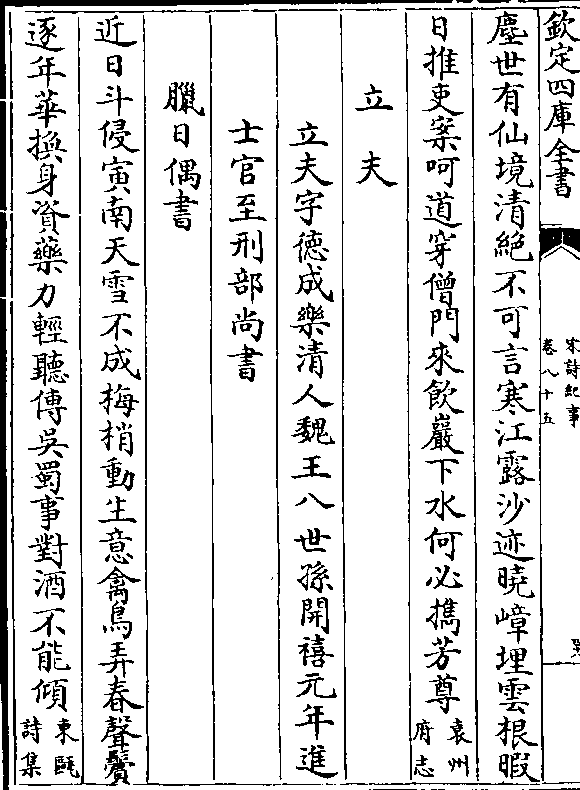 欽定四庫全書
宋詩紀事
卷八十五
塵世有仙境清絶不可言寒江露沙迹曉嶂埋雲根暇
日推吏案呵道穿僧門來飲巖下水何必攜芳尊袁州府志
立夫
立夫字德成樂清人魏王八世孫開禧元年進
士官至刑部尚書
臘日偶書
近日斗侵寅南天雪不成梅梢動生意禽鳥弄春聲鬢
逐年華換身資藥力輕聽傳吳蜀事對酒不能傾東甌詩集